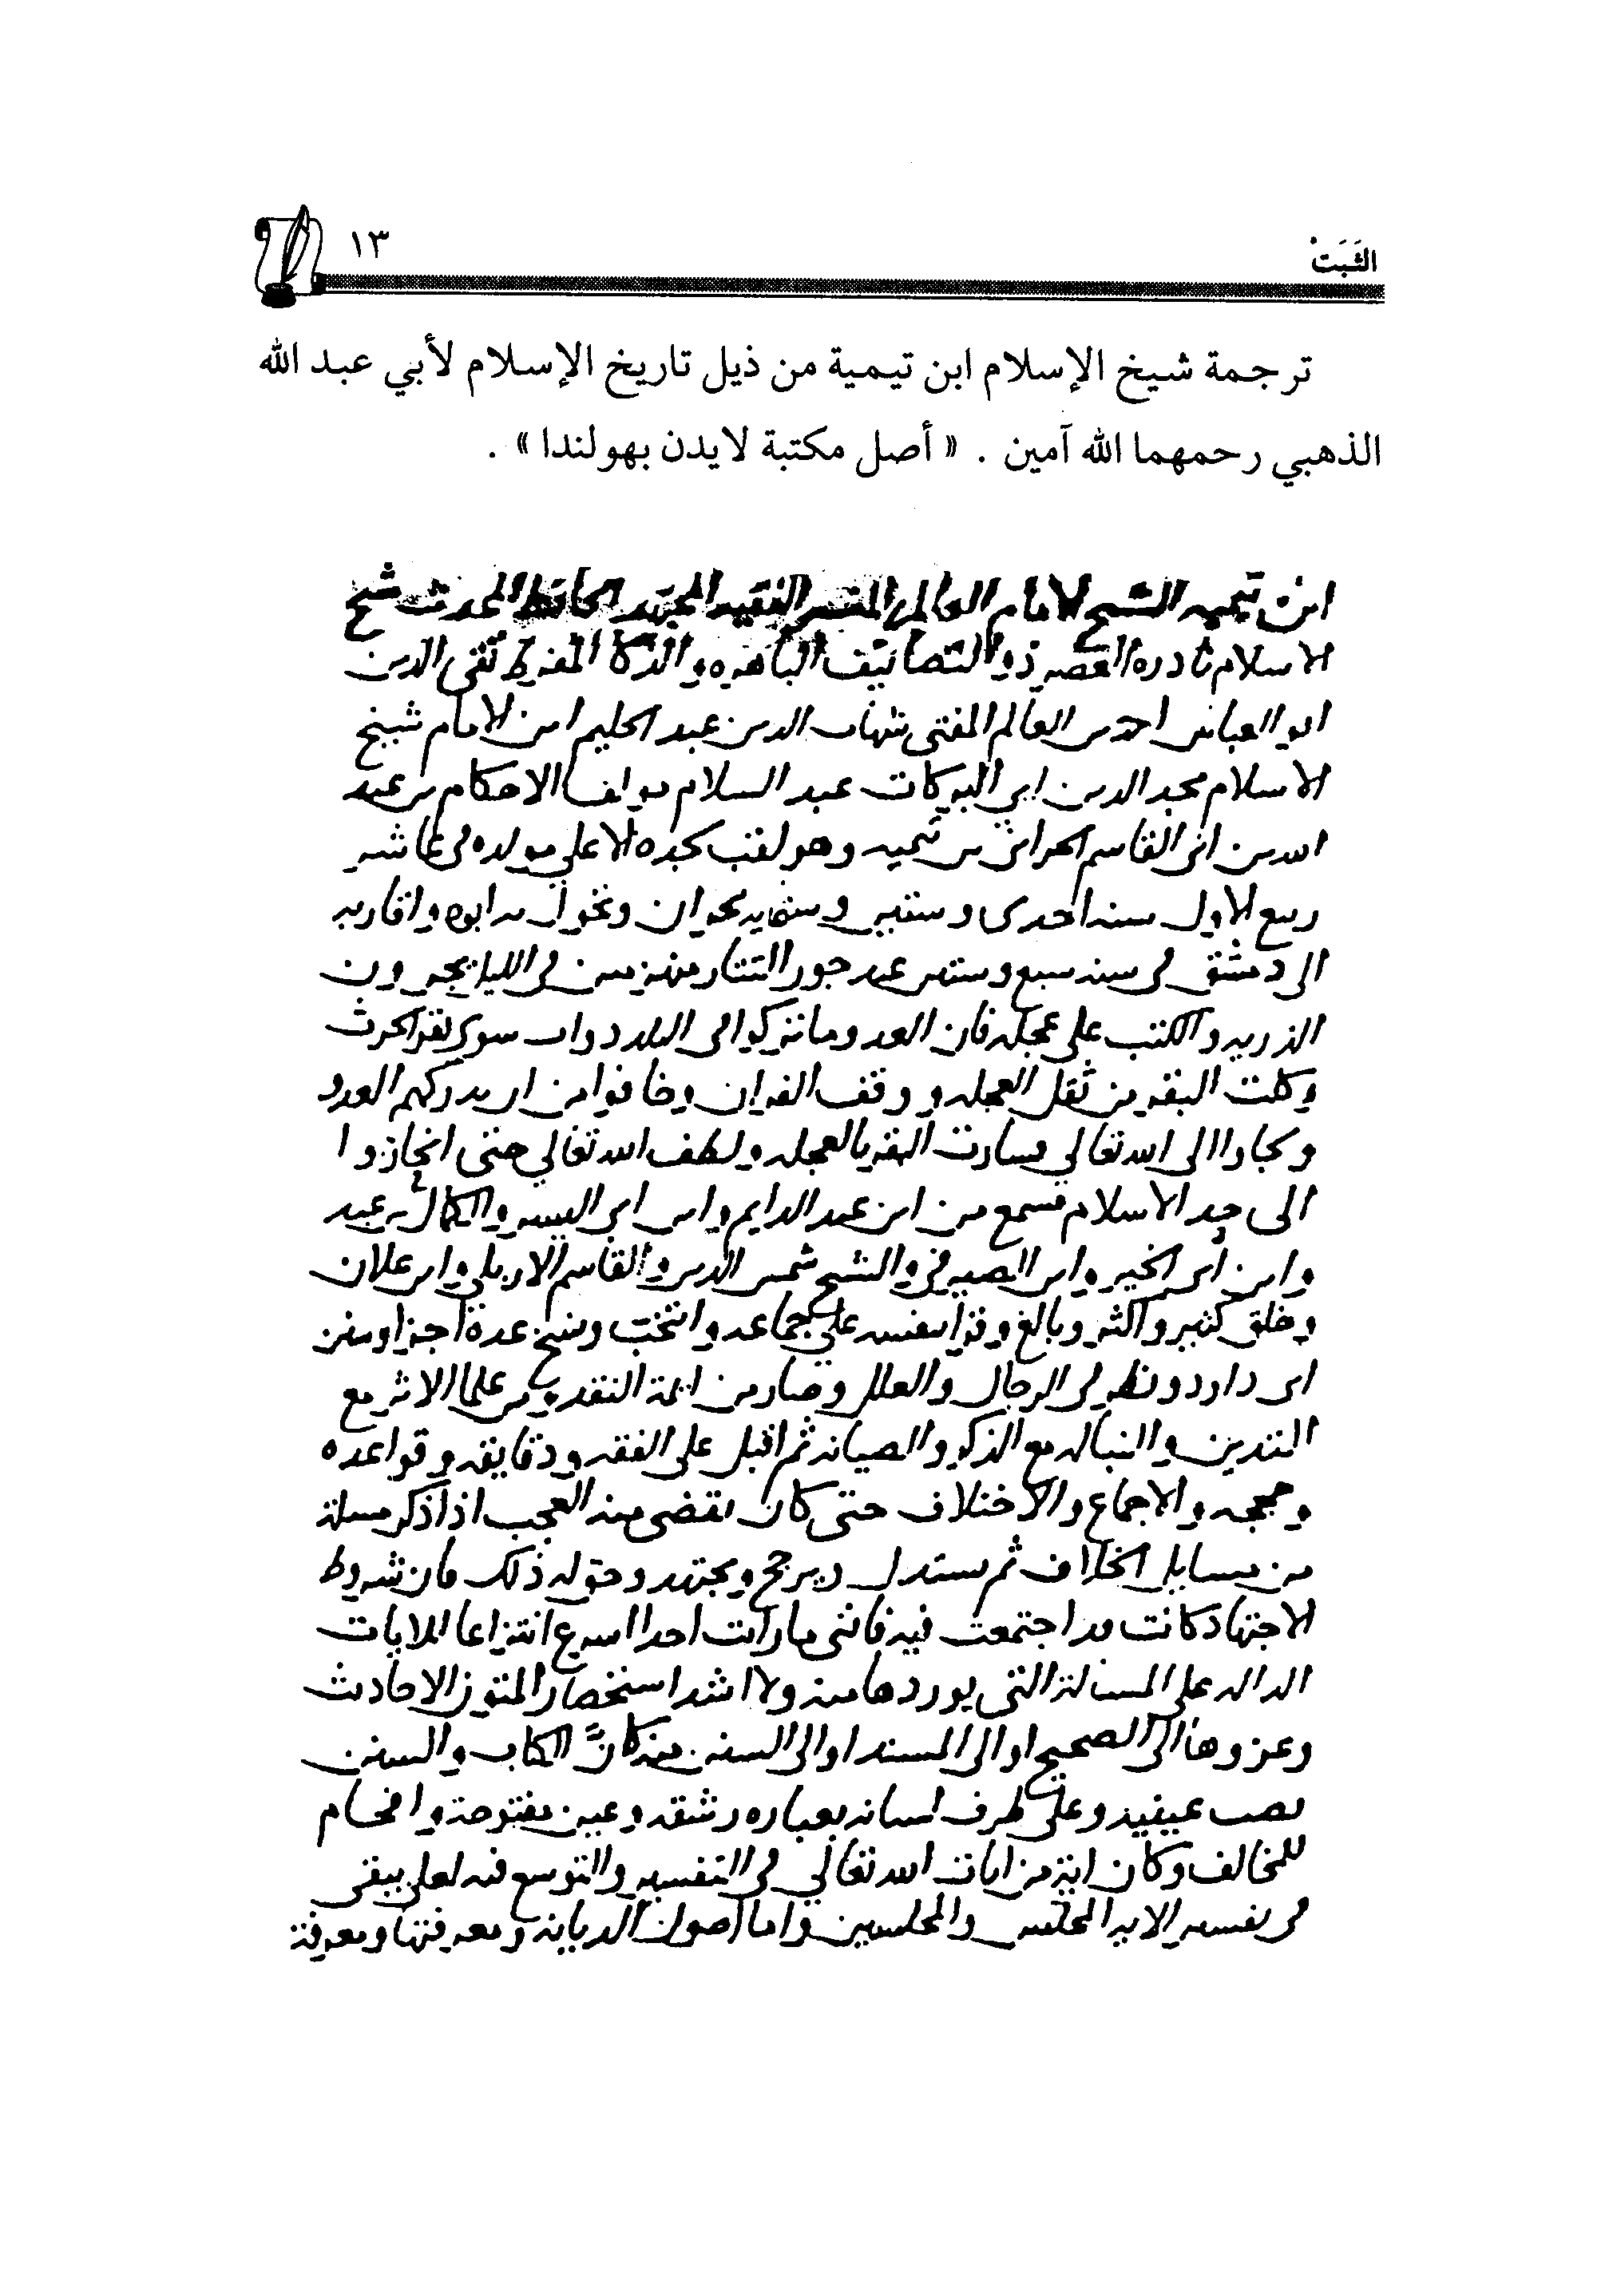 الثَبَتْ
١٣
ترجمة شيخ الإسلام ابن تيمية من ذيل تاريخ الإسلام لأبي عبد الله
الذهبي رحمهما الله آمين . « أصل مكتبة لايدن بهولندا » .
ابن تيميه الشيخ الامام العالم المفسر الفقيه المجتهد الحافظ المحدث شيخ
الاسلام نادرة العصر ذو التصانيف الباهره والذكا المفرط تقي الدين
ابو العباس احمد بن العالم المفتي شهاب الدين عبد الحليم ابن الامام شيخ
الاسلام مجد الدين ابي البركات عبد السلام مولف الاحكام بن عبد
الله بن ابي القاسم الحراني بن تيميه وهو لقب لجده الاعلي مولده في عاشر
ربيع الاول سنه احدى وستين وستمايه بحران وتحول به ابوه واقاربه
الى دمشق في سنه سبع وستين عند جور التتار منهزمين في الليل يجرون
الذريه والكتب على عجله فان العدو ما تركوا في البلد دواب سوى بقر الحرث
وكلت البقر من ثقل العجله ووقف الفران وخافوا من ان يدركهم العدو
ولجاوا الى الله تعالي فسارت البقر بالعجله ولطف الله تعالي حتى انحازوا
الى حد الاسلام فسمع من ابن عبد الدايم وابن ابي اليسر والكمال بن عبد
وابن ابي الخير وابن الصيرفي والشيخ شمس الدين والقاسم الاربلي وابن علان
وخلق كثير واكثر وبالغ وقرا بنفسه على جماعه وانتخب ونسخ عدة اجزا وسنن
ابي داود ونظر في الرجال والعلل وصار من ايمة النقد ومن علما الاثر مع
التدين والنباله مع الذكر والصيانه ثم اقبل على الفقه ودقايقه وقواعده
وحججه والاجماع والاختلاف حتى كان يقضى منه العجب اذا ذكر مسلة
من مسايل الخلاف ثم يستدل ويرجح ويجتهد وحق له ذلك فان شروط
الاجتهاد كانت قد اجتمعت فيه فانني ما رايت احدا اسرع انتزاعا للايات
الداله على المسالة التي يوردها منه ولا اشد استحضارا لمتون الاحاديث
وعزوها الى الصحيح او الى المسند او الى السنن منه كانّ الكتاب والسنن
نصب عينيه وعلى طرف لسانه بعباره رشقه وعين مفتوحة وافحام
للمخالف وكان اية من ايات الله تعالي في التفسير والتوسع فيه لعله يبقى
في تفسير الايه المجلس والمجلسين واما اصول الديانه ومعرفتها ومعرفة